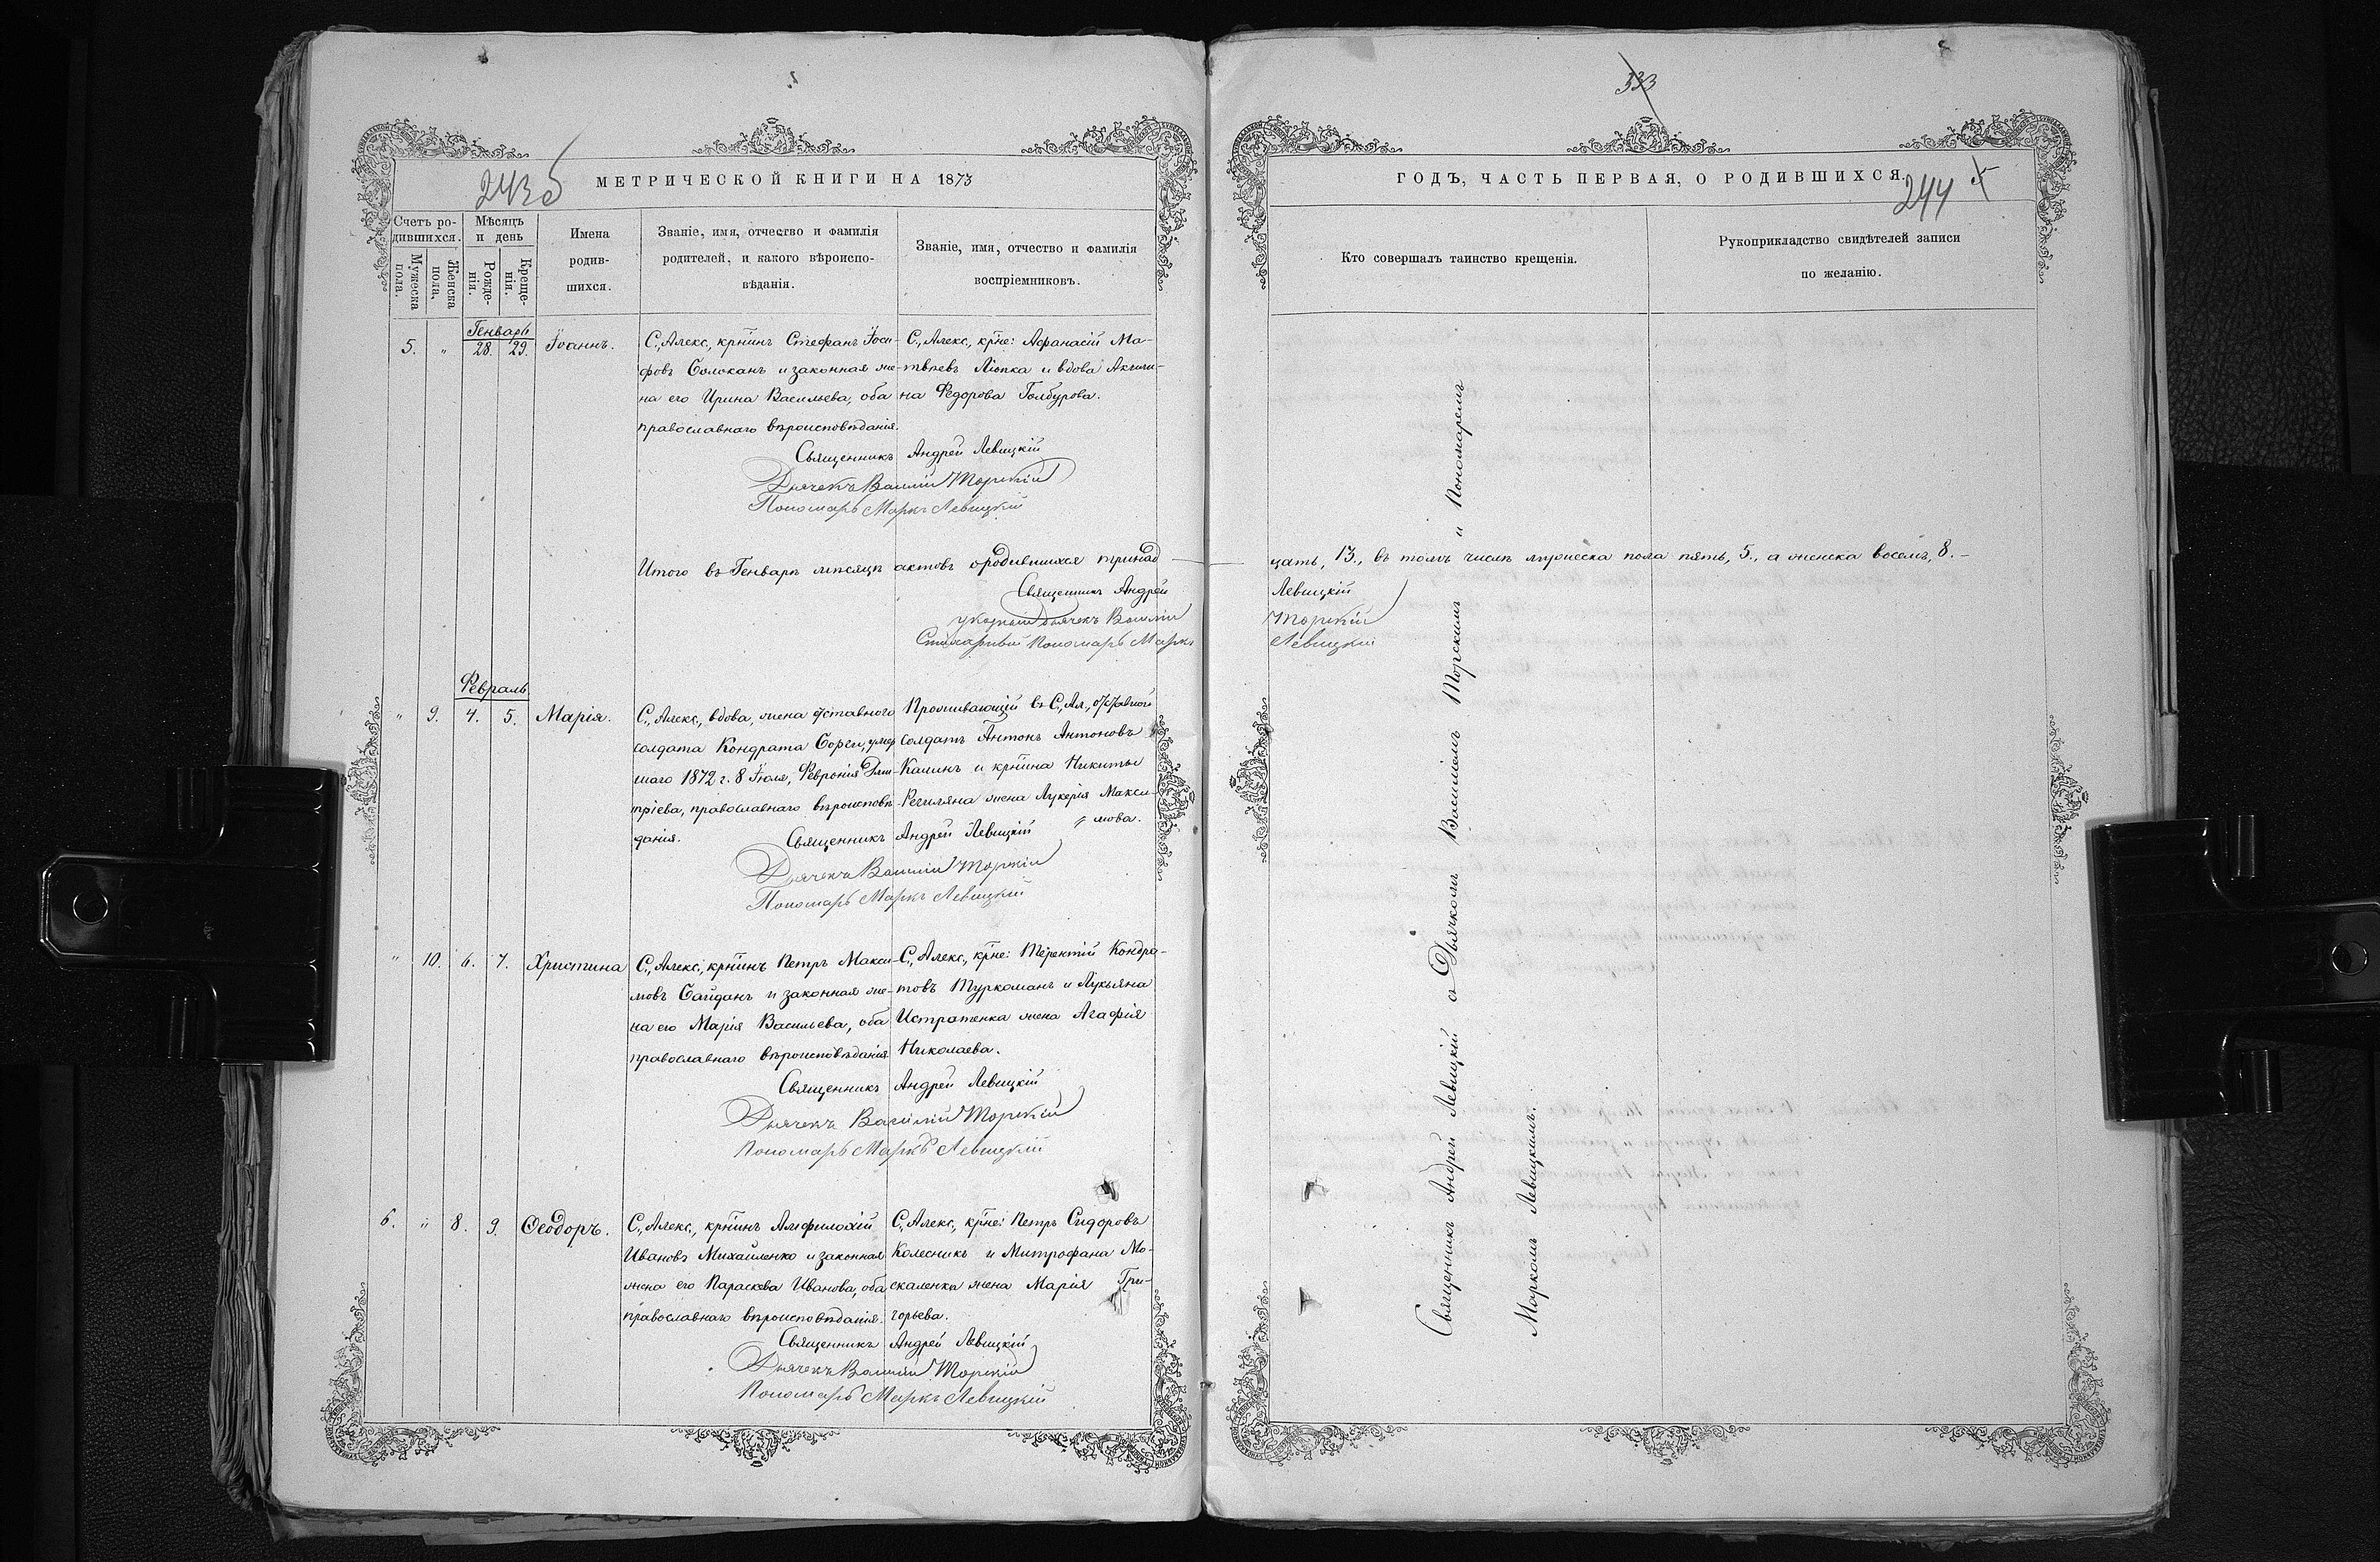 333
243 б
МЕТРИЧЕСКОЙ КНИГИ НА 1873
Счетъ родившихся.
Мужеска пола.
Женска пола.
Мѣсяцъ и день
Рожденія.
Крещенія.
Имена
родив-
шихся.
Званіе, имя, отчество и фамилія
родителей, и какого вѣроиспо-
вѣданія.
Званіе, имя, отчество и фамилія
воспріемниковъ.
Генварь
5. " 28. 29. Іоаннъ.
С., Алекс., крн͞инъ Стефанъ Іоси-
фовъ Солоканъ и законная же-
на его Ирина Васильева, оба
православнаго вѣроисповѣданія.
С., Алекс., кр͞не: Афанасій Ма-
твѣевъ Люпка и вдова Аксини-
на Федорова Голбурова.
Священникъ Андрей Левицкій
Дьячекъ Василій Торскій
Пономарь Маркъ Левицкій
Итого въ Генварѣ мѣсяцѣ актовъ о родившихся тринад
Священникъ Андрей
Дьячекъ Василій
Стихарный Пономарь Маркъ
Февраль
" 9. 4. 5. Марія.
С., Алекс., вдова, жена отставного
солдата Кондрата Сорги, умер
шаго 1872 г. 8 Іюля, Февронія Дми
тріева, православнаго вѣроисповѣ
данія.
Проживающій въ С., Ал., отставной
солдатъ Антонъ Антоновъ
Калинъ и крн͞ина Никиты
жена Лукерія Макси-
мова.
Священникъ Андрей Левицкій
Дьячекъ Василій Торскій
Пономарь Маркъ Левицкій
" 10. 6. 7. Христина
С., Алекс., крн͞инъ Петръ Макси-
мовъ Сайданъ и законная же-
на его Марія Васильева, оба
православнаго вѣроисповѣданія
С., Алекс., кр͞не: Терентій Кондра-
товъ Туркоманъ и Лукьяна
Истратенка жена Агафія
Николаева.
Священникъ Андрей Левицкій
Дьячекъ Василій Торскій
Пономарь Маркъ Левицкій
6. " 8. 9. Ѳеодоръ.
С., Алекс., крн͞инъ Амфилохій
Ивановъ Михайленко и законная
жена его Параскева Иванова, оба
православнаго вѣроисповѣданія.
С., Алекс., кр͞не: Петръ Сидоровъ
Колесникъ и Митрофана Мо-
скаленка жена Марія Гри-
горьева.
Священникъ Андрей Левицкій
Дьячекъ Василій Торскій
Пономарь Маркъ Левицкій
ГОДЪ, ЧАСТЬ ПЕРВАЯ, О РОДИВШИХСЯ.
244
Кто совершалъ таинство крещенія.
Рукоприкладство свидѣтелей записи
по желанію.
цать, 13., въ томъ числѣ мужеска пола пять, 5., а женска восемь, 8.
Левицкій
Торскій
Левицкій
Священникъ Андрей Левицкій съ Дьячкомъ Василіемъ Торскимъ и Пономаремъ
Маркомъ Левицкимъ.